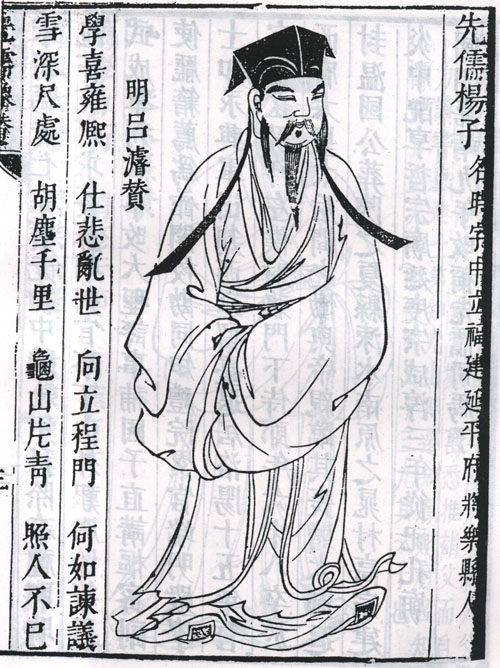 先儒楊子 名時字中立福建延平府將樂縣人
明呂濬贊
學喜雍熙 仕悲亂世 向立程門 何如諫議
雪深尺處 胡塵千里 龜山片青 照人不已